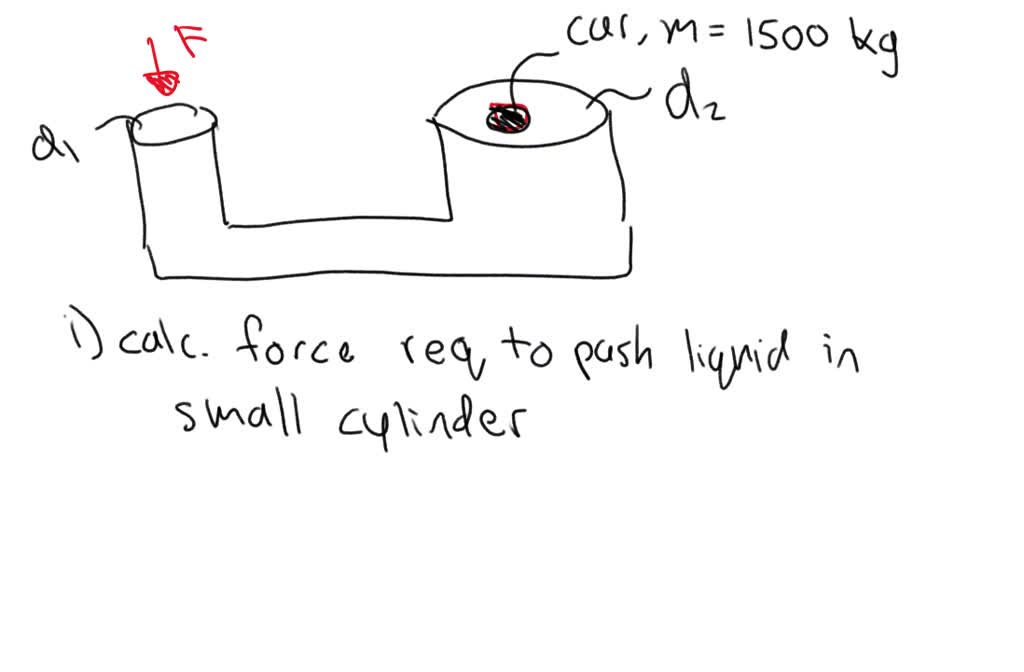 F
car, m = 1500 kg
d₁
d₂
i) calc. force req to push liquid in
small cylinder